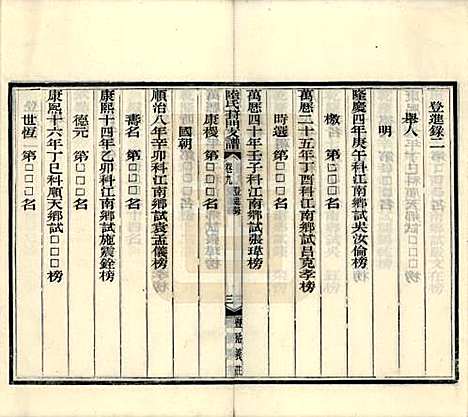 登進錄二
舉人
明
隆慶四年庚午科江南鄉試吳汝倫榜
檄 第□□□名
萬曆二十五年丁酉科江南鄉試昌克孝榜
時選 第□□□名
萬曆四十年壬子科江南鄉試張瑋榜
康稷 第□□□名
陸氏葑門支譜 卷九 登進錄 三 豐裕義莊
國朝
順治八年辛卯科江南鄉試袁孟儀榜
壽名 第□□□名
康熙十四年乙卯科江南鄉試施震銓榜
德元 第□□□名
康熙十六年丁巳科順天鄉試□□□榜
世恆 第□□□名